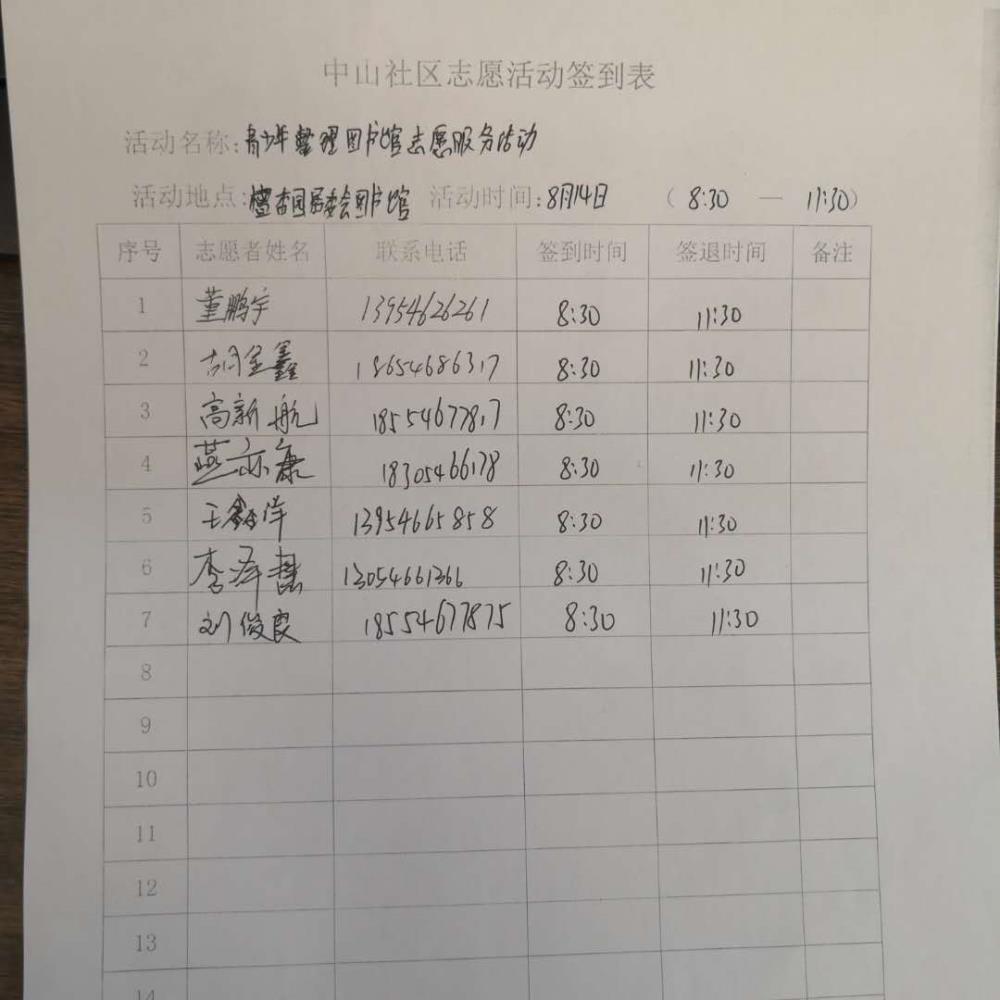 中山社区志愿活动签到表
活动名称:青少年整理图书馆志愿服务活动
活动地点:檀香园居委会图书馆 活动时间:8月14日 (8:30 — 11:30)
序号 志愿者姓名 联系电话 签到时间 签退时间 备注
1 董鹏宇 13954626261 8:30 11:30
2 胡金鑫 18654686317 8:30 11:30
3 高新航 18554677817 8:30 11:30
4 燕亦康 18305466178 8:30 11:30
5 王鑫洋 13954665858 8:30 11:30
6 李泽慧 13054661366 8:30 11:30
7 刘俊良 18554677875 8:30 11:30
8
9
10
11
12
13
14